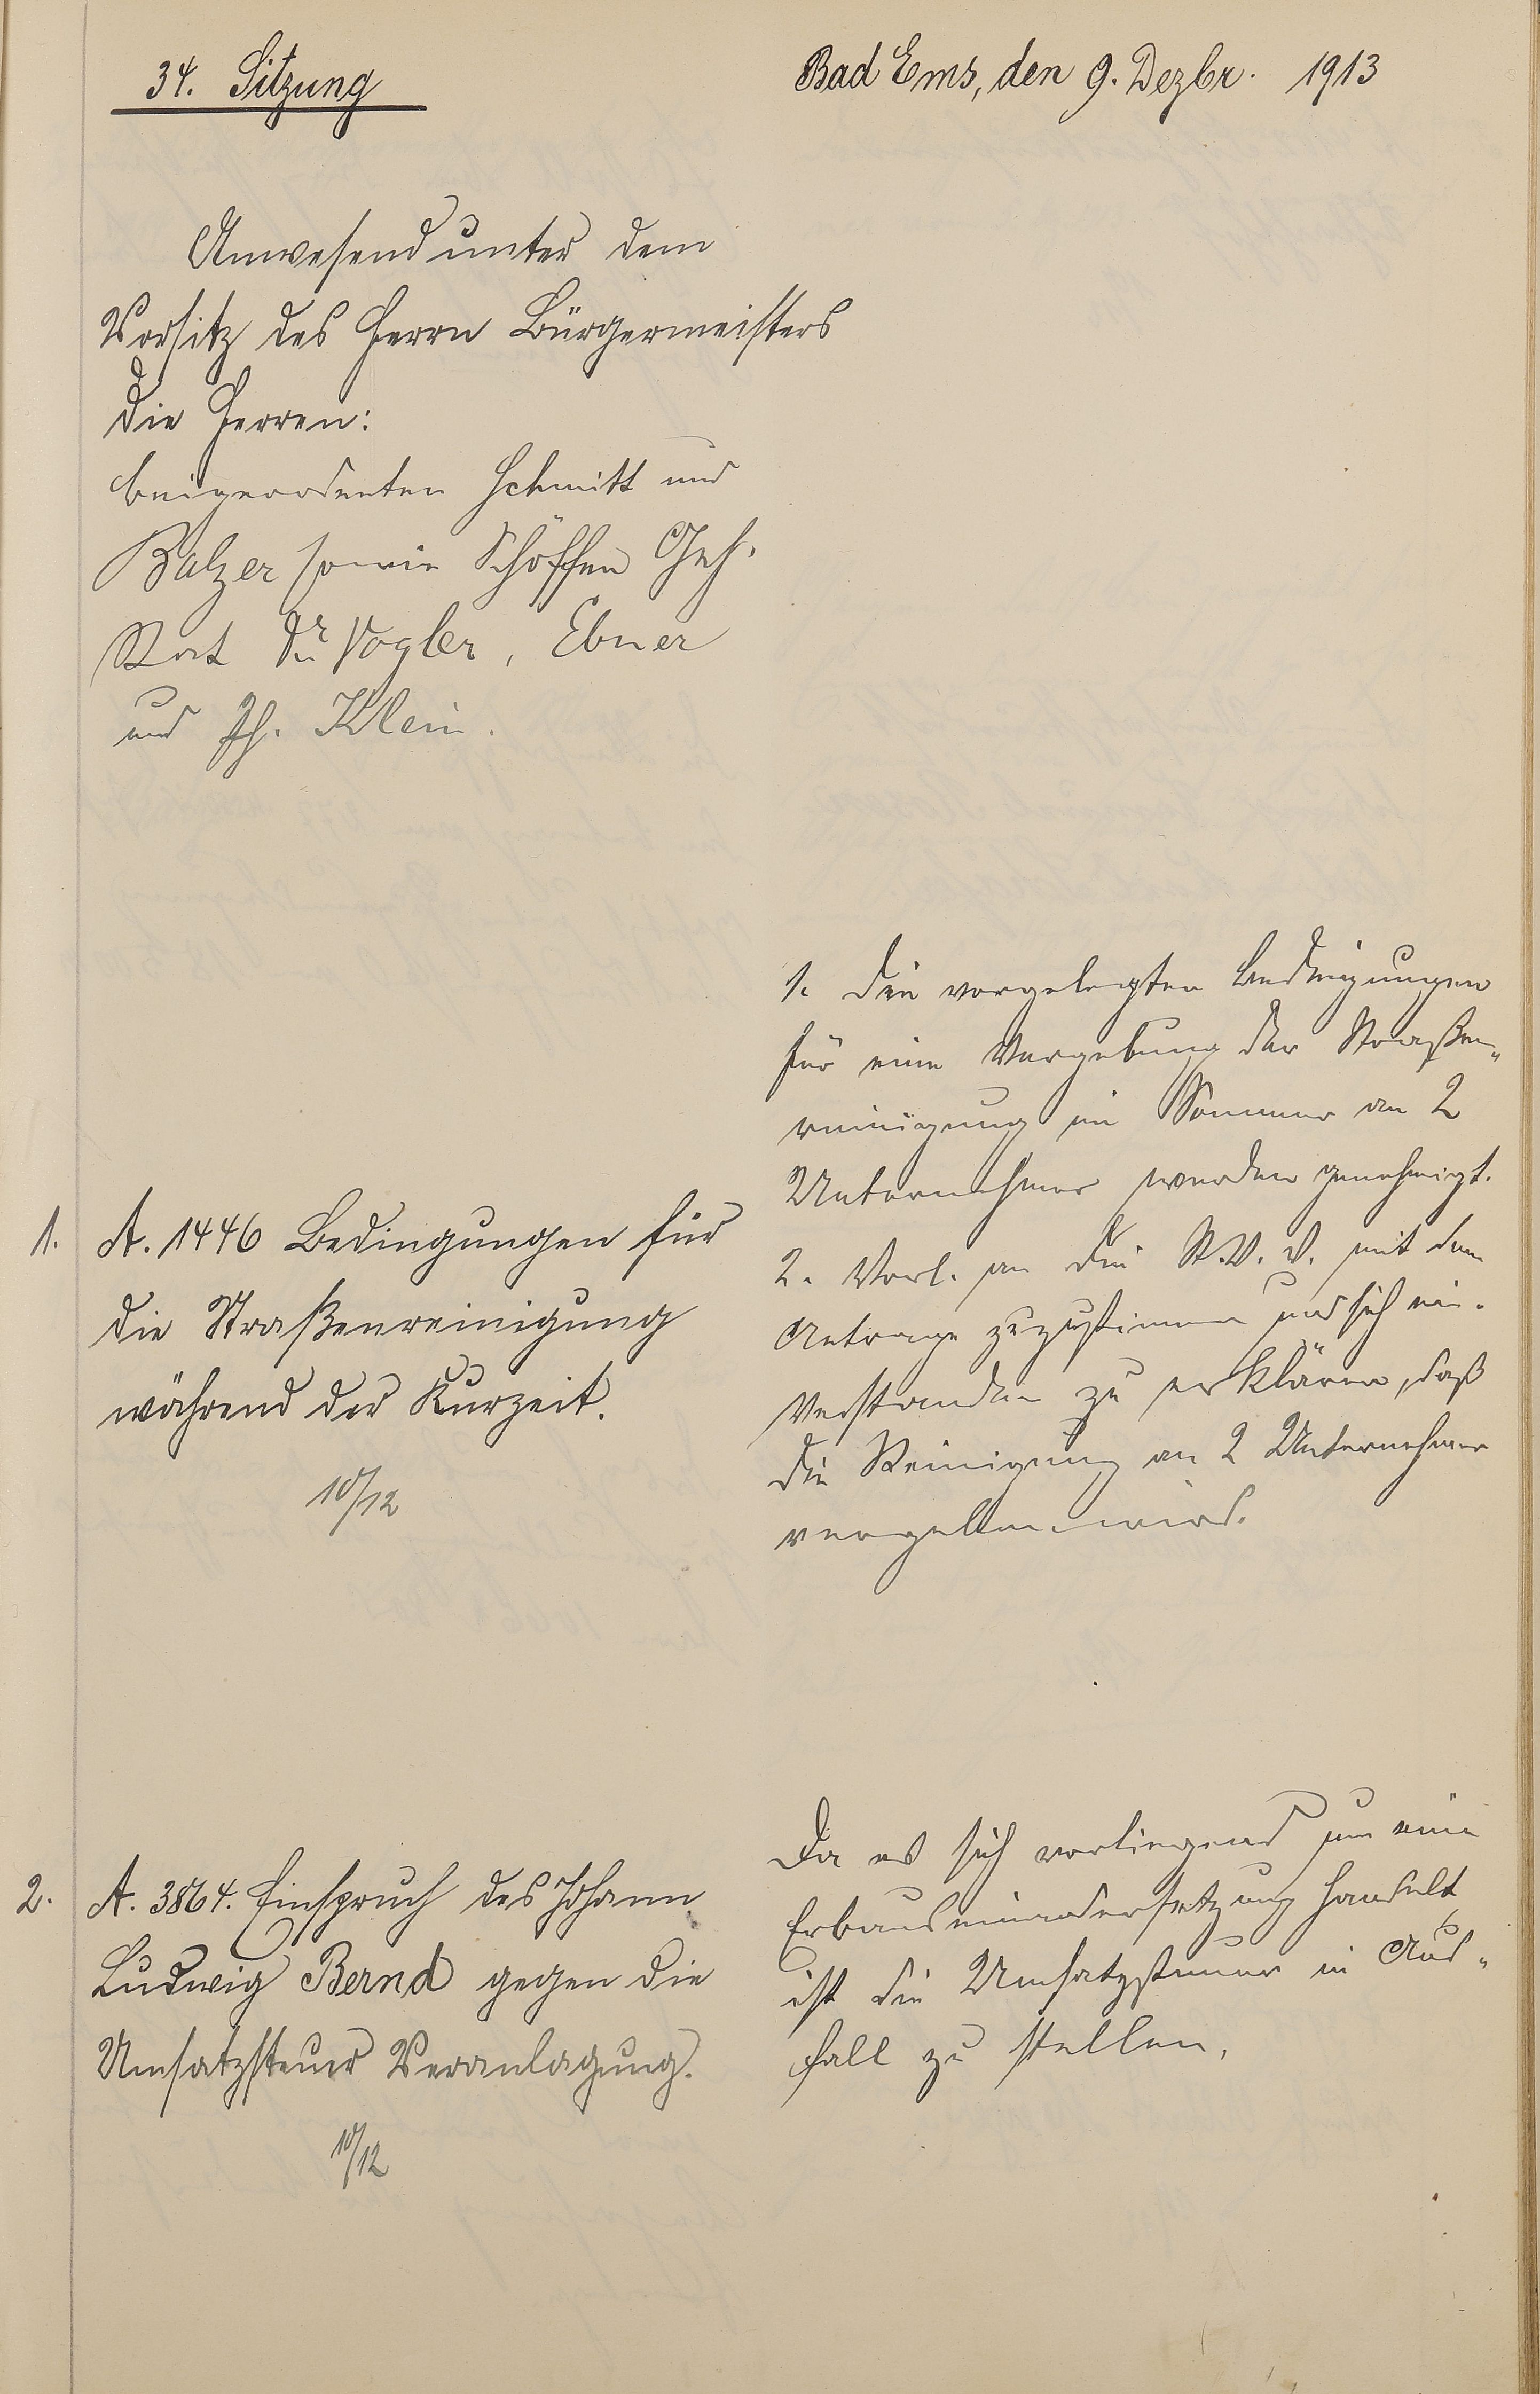 34. Sitzung
Bad Ems, den 9. Dezbr. 1913
Anwesend unter dem
Vorsitz des Herrn Bürgermeisters
die Herren:
Beigeordneten Schmitt und
Balzer sowie Schöffen Geh.
Rat Dr Vogler, Ebner
und Jh. Klein.
1.
A. 1446 Bedingungen für
die Straßenreinigung
während der Kurzeit.
10/12
1. Die vorgelegten Bedingungen
für eine Vergebung der Straßen„
reinigung im Sommer an 2
Unternehmer werden genehmigt.
2. Vorl. an die St.V.V. mit dem
Antrage zuzustimmen und sich ein.
verstanden zu erklären, daß
die Reinigung an 2 Unternehmer
vergeben wird.
2.
A. 3864. Einspruch des Johann
Ludwig Bernd gegen die
Umsatzsteuer Veranlagung.
10/12
Da es sich vorliegend um eine
Erbauseinandersetzung handelt
ist die Umsatzsteuer in Aus„
fall zu stellen.